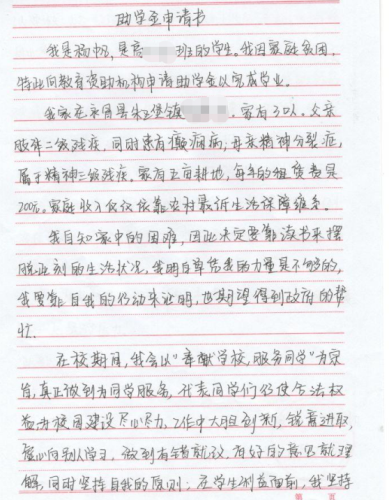 助学金申请书
我是杨中8,是高 班的学生。我因家庭贫困,
特此向教育资助机构申请助学金以完成学业。
我家在永昌县朱王堡镇 ,家有3口人。父亲
肢体二级残疾,同时患有癫痫病;母亲精神分裂症,
属于精神二级残疾。家有五亩耕地,每年的租赁费是
200元。家庭收入仅仅依靠农村最低生活保障维系。
我自知家中的困难,因此决定要靠读书来摆
脱此刻的生活状况,我明白单凭我的力量是不够的,
我要靠自我的行动来证明,也期望得到政府的帮
忙。
在校期间,我会以“奉献学校,服务同学”为宗
旨,真正做到为同学服务,代表同学们行使合法权
益为校园建设尽心尽力。工作中大胆创新,锐意进取,
虚心向别人学习,做到有错就改,有好的意见就理
解,同时坚持自我的原则;在学生利益面前,我坚持
第 页